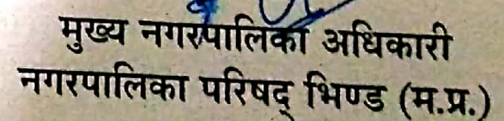 मुख्य नगरपालिका अधिकारी
नगरपालिका परिषद् भिण्ड (म.प्र.)